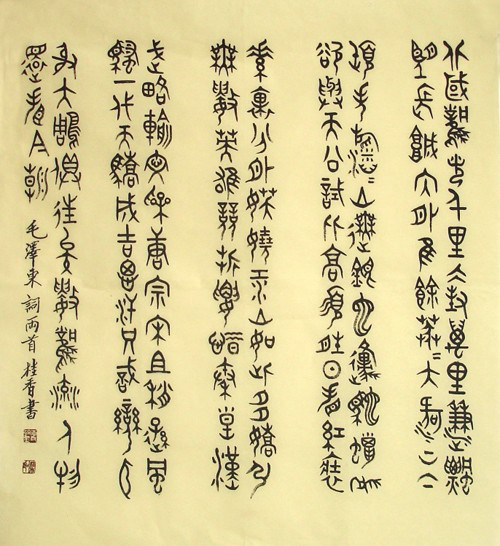 北國風光千里冰封萬里雪飄
望長城內外惟餘莽莽大河上下
頓失滔滔山舞銀蛇原馳蠟象
欲與天公試比高須晴日看紅裝
素裹分外妖嬈江山如此多嬌引
無數英雄競折腰惜秦皇漢
武略輸文采唐宗宋且稍遜風
騷一代天驕成吉思汗只識彎弓
射大鵰俱往矣數風流人物
還看今朝
毛澤東詞兩首桂香書